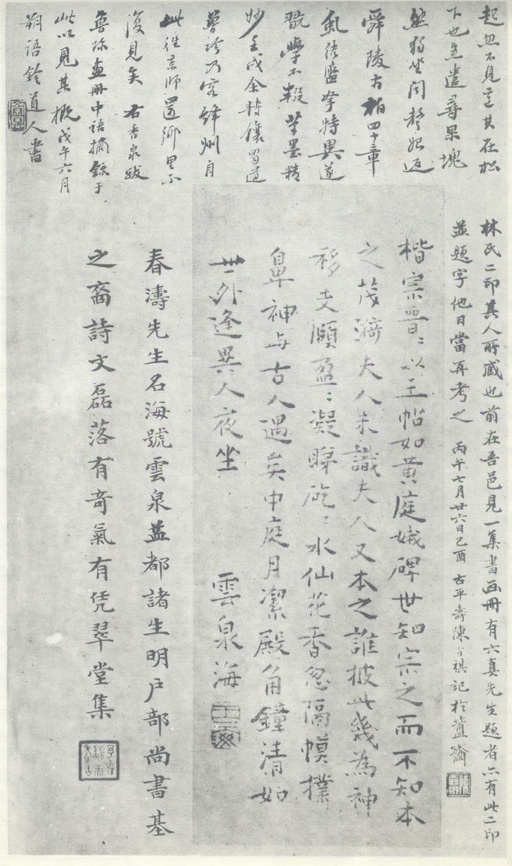 起忽不見意其在松
下也急遣尋果塊
坐獨坐閣
舜陵古柏四十章
氣
翫學不輟筆墨精
妙壬戌余持鑲蜀道
夢珍乃官絳州自
此往京師還鄉里不
復見矣 右香泉跋
魯珍畫冊中語摘錄于
此以見其概戊午六月
朔語鈴道人書
林氏二印其人所藏也前在吾邑見一集書画冊有六真先生題者亦有此二印
並題字他日當再考之 丙午七月廿六日己酉 古平壽陳介祺記於簠齋
楷宗晋以王帖如黃庭娥碑世知宗之而不知本
之茂漪夫人未識夫人又本之誰披此幾為神
移支頤盈盈凝睇矻矻水仙花香忽隔幙撲
鼻神与古人遇矣中庭月潔殿角鐘清如
世外逢異人夜坐 雲泉海
春濤先生名海號雲泉益都諸生明戶部尚書基
之裔詩文磊落有奇氣有凭翠堂集